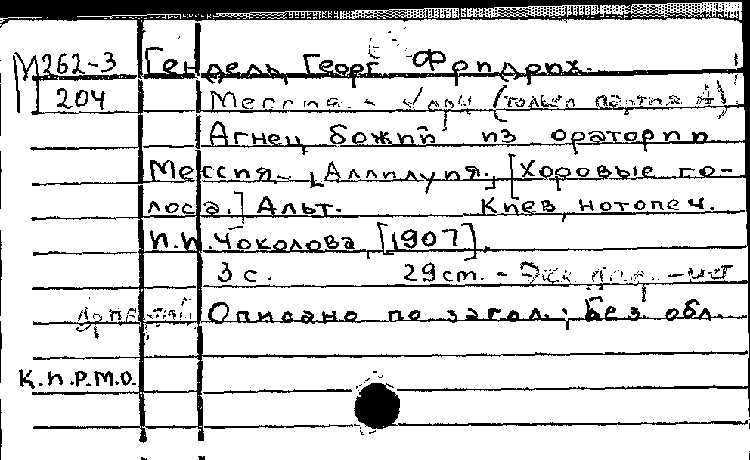 М262-3 Гендель, Георг Фридрих.
204 Мессия. - Хоры (только партия А)
Агнец божий из оратории
Мессия. [Аллилуия.] [Хоровые го-
лоса.] Альт. Киев, нотопеч.
И.И. Чоколова, [1907].
3 с. 29 ст. - Экз. деф. - нет
Описано по загол.; Без обл.
К.П.Р.М.О.